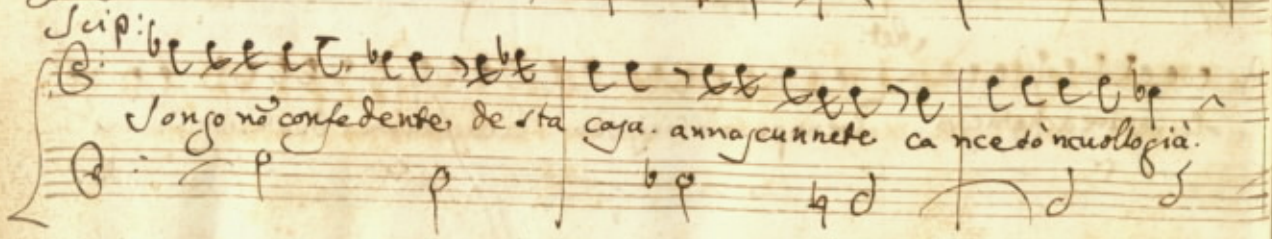 Scip:
Songo nõ confedente de sta casa. annascunnete ca nce sò ncuollo già.